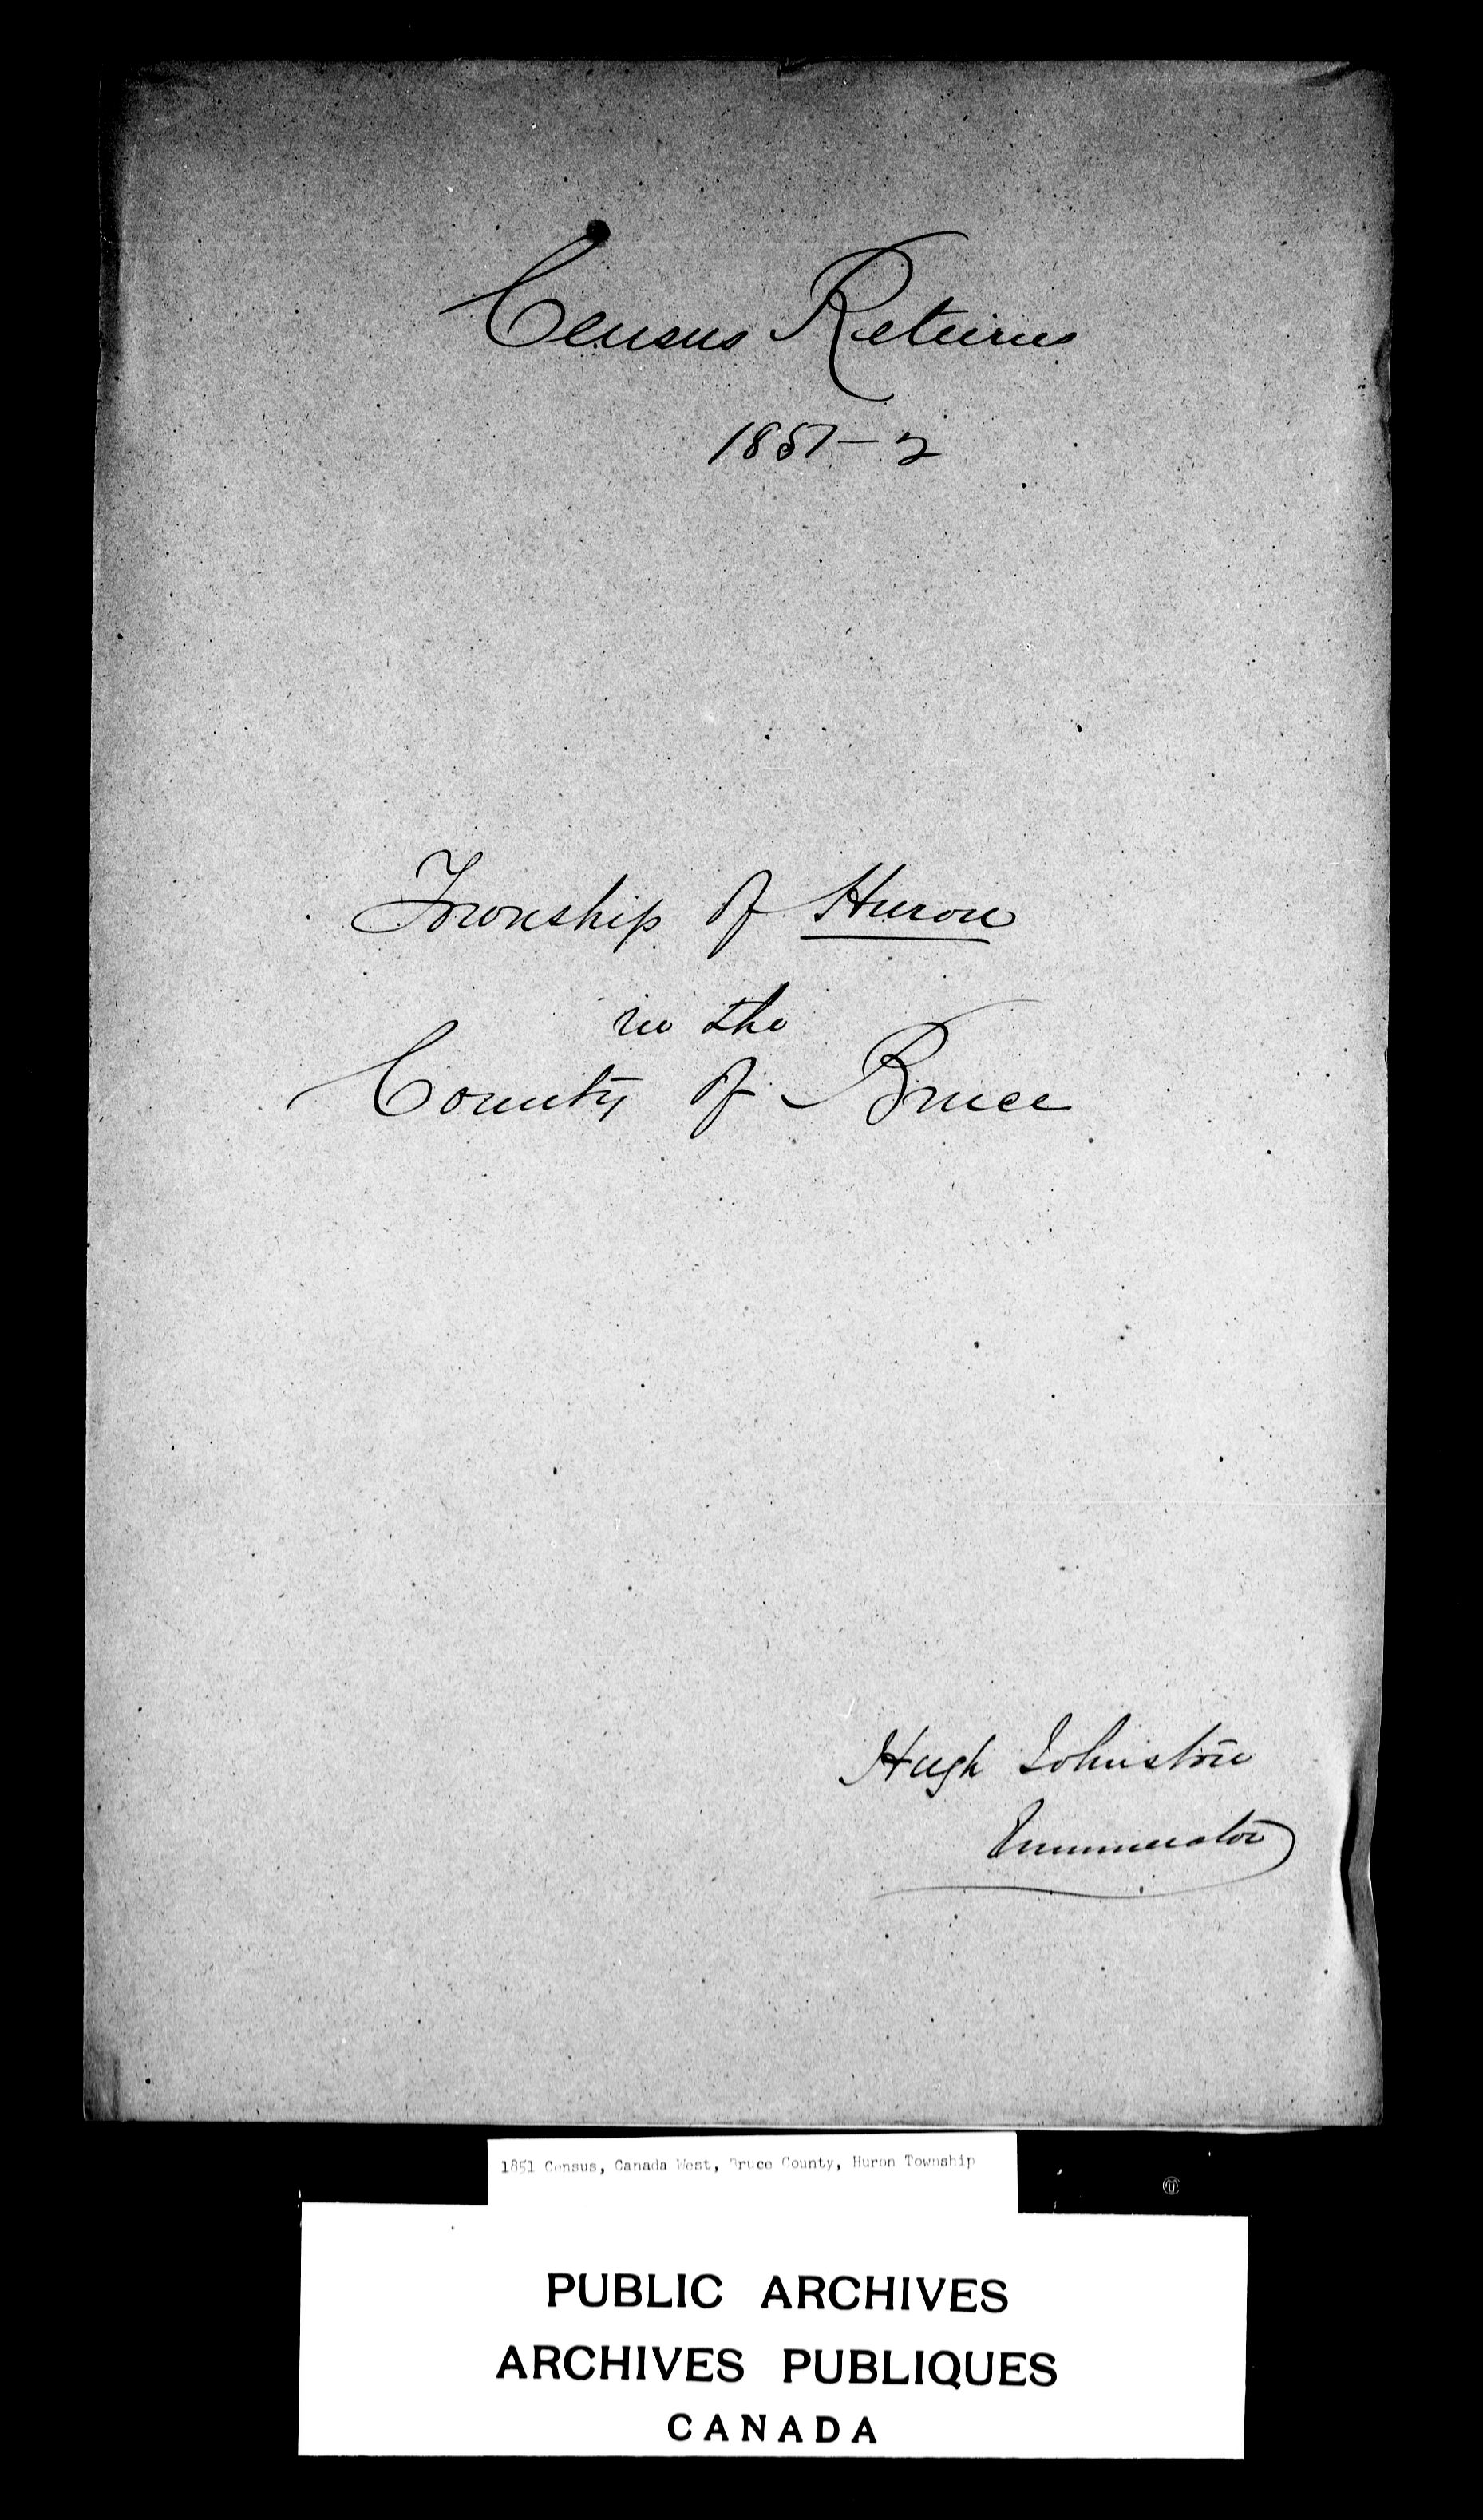 Census Returns
1851-2
Township of Huron
in the
County of Bruce
Hugh Johnston
Enumerator
1851 Census, Canada West, Bruce County, Huron Township
PUBLIC ARCHIVES
ARCHIVES PUBLIQUES
CANADA